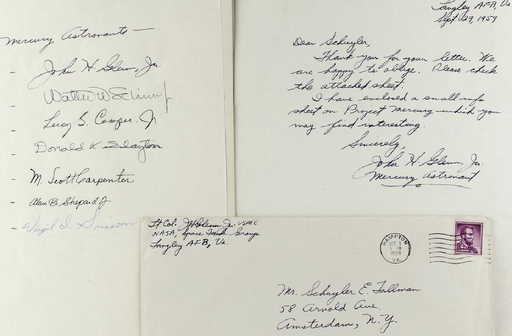 Mercury Astronauts —
John H Glenn, Jr
Walter M Schirra, Jr
Leroy G. Cooper, Jr
Donald K Slayton
M. Scott Carpenter
Alan B. Shepard Jr
Virgil I. Grissom
Langley AFB, Va
Sept 29, 1959
Dear Schuyler,
Thank you for your letter. We
are happy to oblige. Please check
the attached sheet.
I have enclosed a small info
sheet on Project Mercury which you
may find interesting.
Sincerely,
John H Glenn, Jr
Mercury Astronaut
Lt Col. JH Glenn Jr. USMC
NASA, Space Task Group
Langley AFB, Va.
HAMPTON
VA.
Mr. Schuyler E. Fallman
58 Arnold Ave
Amsterdam, N.Y.